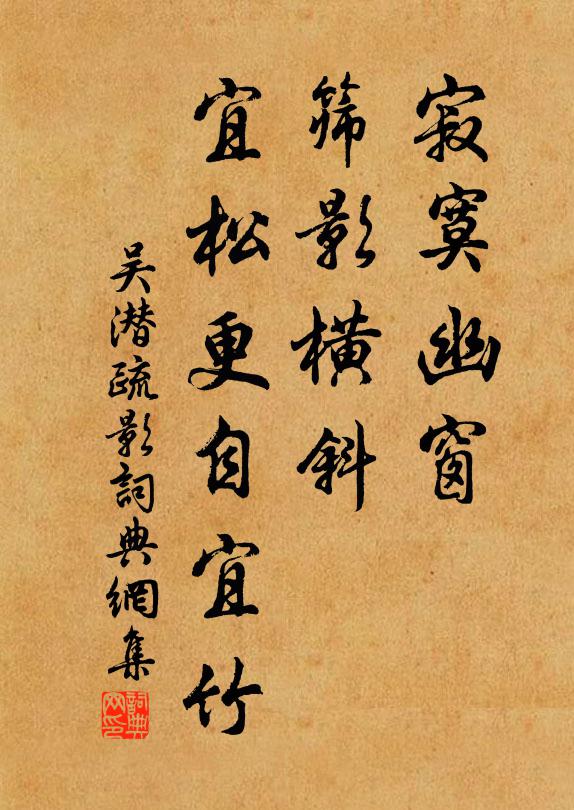 寂寞幽窗
筛影橫斜
宜松更自宜竹
吴潜疏影詞典網集
詞典网印